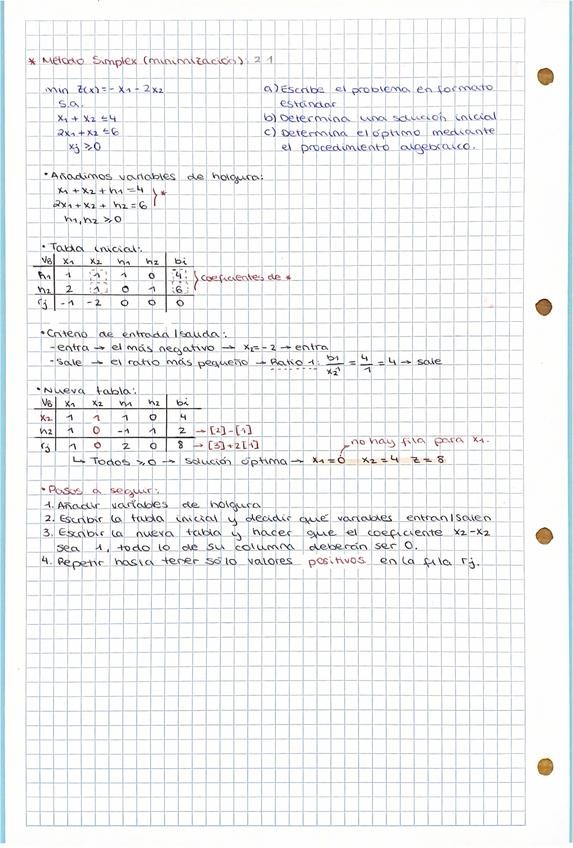 * Método Simplex (minimización): 2 1
min Z(x) = - x1 - 2x2
s.a.
x1 + x2 ≤ 4
2x1 + x2 ≤ 6
xj ≥ 0
a) Escribe el problema en formato
estándar
b) Determina una solución inicial
c) Determina el óptimo mediante
el procedimiento algebraico.
• Añadimos variables de holgura:
x1 + x2 + h1 = 4
2x1 + x2 + h2 = 6 } *
h1, h2 ≥ 0
• Tabla inicial:
VB x1 x2 h1 h2 bi
h1 1 1 1 0 4
h2 2 1 0 1 6 } coeficientes de *
rj -1 -2 0 0 0
• Criterio de entrada/salida:
- entra → el más negativo → x2 = -2 → entra
- Sale → el ratio más pequeño → Ratio 1: b1/x2¹ = 4/1 = 4 → sale
• Nueva tabla:
VB x1 x2 h1 h2 bi
x2 1 1 1 0 4
h2 1 0 -1 1 2 → [2]-[1]
rj 1 0 2 0 8 → [3]+2[1]
no hay fila para x1.
↳ Todos ≥ 0 → solución óptima → x1 = 0 x2 = 4 z = 8
• Pasos a seguir:
1. Añadir variables de holgura
2. Escribir la tabla inicial y decidir qué variables entran/salen
3. Escribir la nueva tabla y hacer que el coeficiente x2-x2
sea 1, todo lo de su columna deberán ser 0.
4. Repetir hasta tener sólo valores positivos en la fila rj.